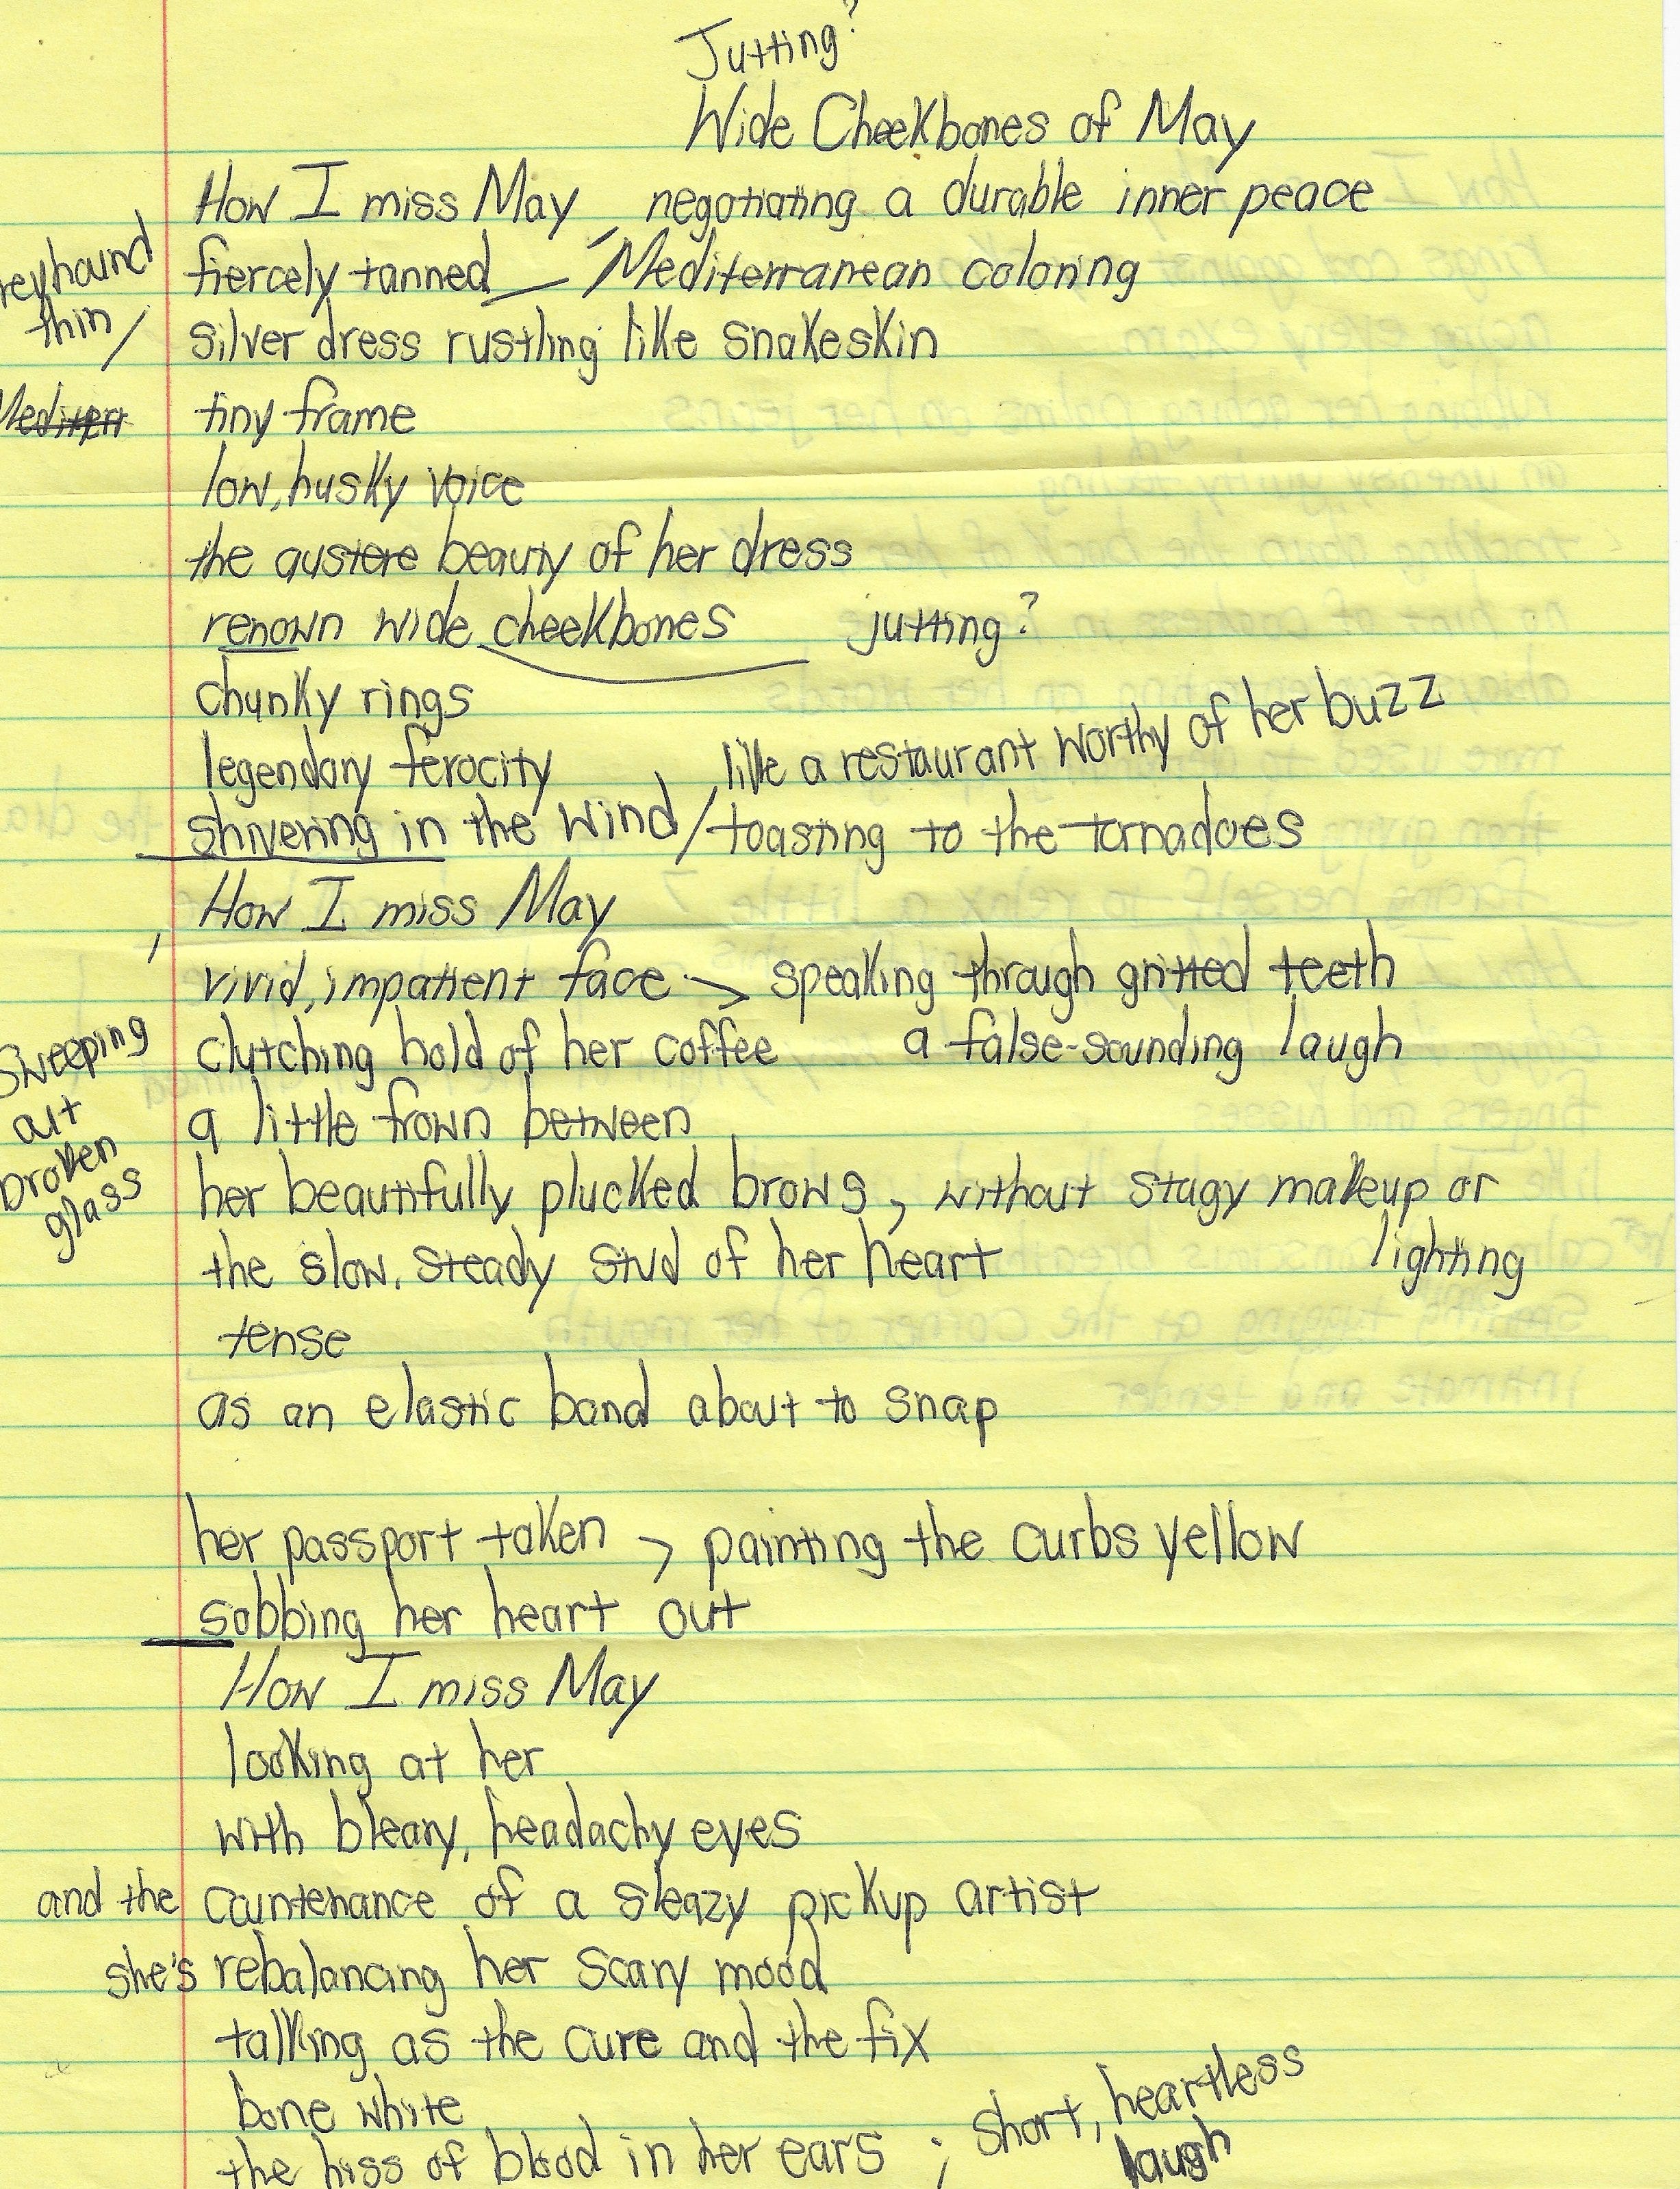 Jutting?
Wide Cheekbones of May
How I miss May, negotiating a durable inner peace
fiercely tanned — Mediterranean coloring
reyhound
thin /
silver dress rustling like snakeskin
Mediterr
tiny frame
low, husky voice
the austere beauty of her dress
renown wide cheekbones jutting?
chunky rings
legendary ferocity, like a restaurant worthy of her buzz
shivering in the wind / toasting to the tornadoes
How I miss May
, vivid, impatient face > speaking through gritted teeth
clutching hold of her coffee a false-sounding laugh
Sweeping
out
broken
glass
a little frown between
her beautifully plucked brows, without stagy makeup or
lighting
the slow, steady of her heart
tense
as an elastic band about to snap
her passport taken > painting the curbs yellow
sobbing her heart out
How I miss May
looking at her
with bleary, headachy eyes
and the countenance of a sleazy pickup artist
she's rebalancing her scary mood
talking as the cure and the fix
bone white
the hiss of blood in her ears ; short, heartless
laugh